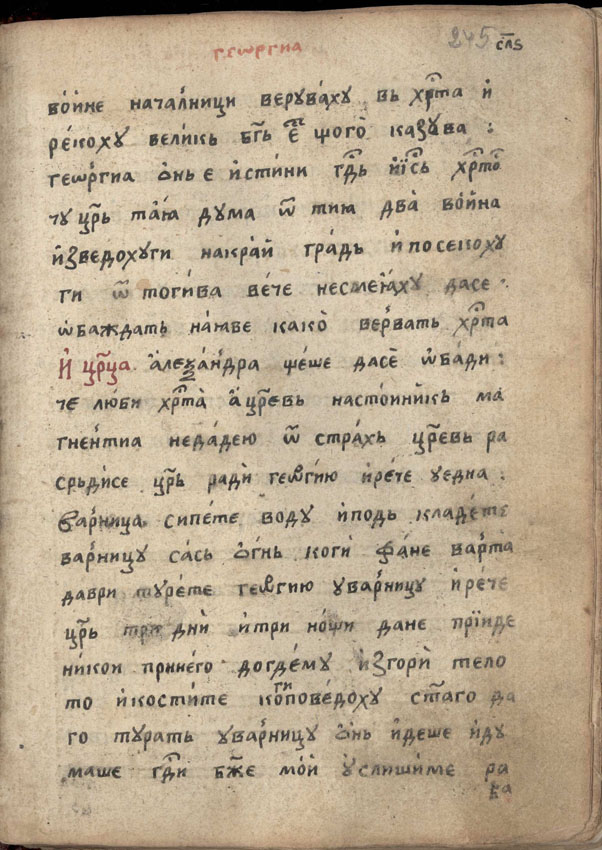 геѡргиа
245 сл҃ѕ
во́йне нача́лници верува́ху вь хрⷭ҇та и҆
ре́коху вели́кь бг҃ь є҆ⷭ҇ щого̀ казꙋва :
геѡ́ргиа ѻ҆нь є и҆сти́ни гдⷭ҇ь і҆и҃сь хрⷭ҇то
чу цр҃ь таꙗ дума ѿ тию два̀ во́йна
и҆зведохуги накра́й гра́дь и҆посекоху
ги ѿ тоги́ва ве́че несмеꙗ́ху дасе
ѡ҆баждать наꙗве како̀ ве́рвать хрⷭ҇та
И҆ цр҃ца. а҆леѯа́ндра ще́ше дасѐ ѡ҆ба́ди :
че лю́би хрⷭ҇та̀ а҆ цр҃евь насто́иникь ма
гне́нтиа неда́дею ѿ стра́хь цр҃евь ра
сръди́се цр҃ь ради геѡ́гию и҆ре́че уедна :
варница сипе́те во́ду и҆подь кладе́те
вар́ницу са́сь ѻ҆гнь коги̂ фа́не варта
даври туре́те геѡ́гию ува́рницу и҆ре́че
цр҃ь три днѝ и҆три но́щи да́не прїиде
никои принне́го догде́му и҆згорѝ тело
то и҆ко́стите коги поведоху ст҃аго да
го турать ува́рницу ѻ҆нь и҆деше и҆ду
маше гдⷭ҇и бж҃е мо́й услиши́ме ра
ба